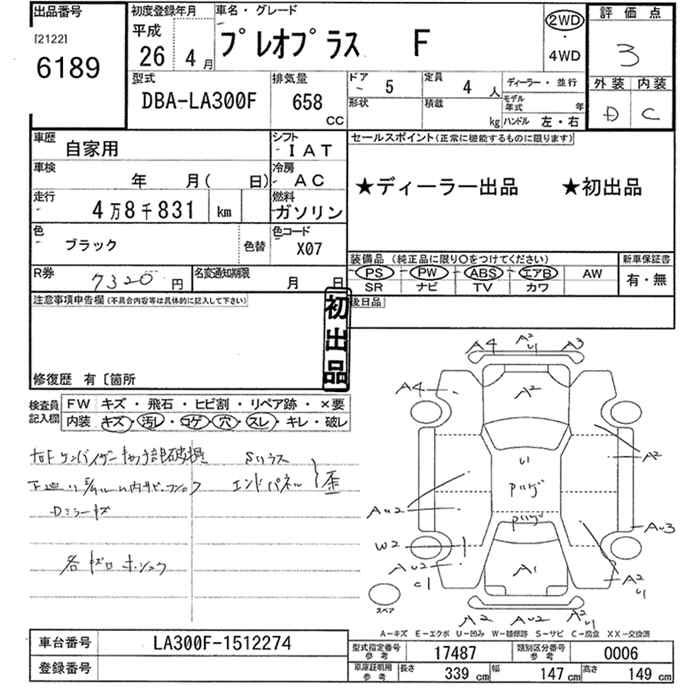 出品番号
[2122]
6189
初度登録年月
平成
26年 4月
車名・グレード
プレオプラス F
2WD
・
4WD
評価点
3
外装 内装
D C
型式
DBA-LA300F
排気量
658
CC
ドア
5
定員
4人
形状
積載
kg
ディーラー・並行
モデル年式 年
ハンドル 左・右
車歴
自家用
シフト
IAT
車検
年 月( 日)
冷房
AC
走行
4万8千831 km
燃料
ガソリン
色
ブラック
色替
色コード
X07
R券
7320円
名変通知期限
月 日
セールスポイント(正常に機能するものに限ります)
★ディーラー出品 ★初出品
装備品 (純正品に限り○をつけてください)
PS PW ABS エアB AW
SR ナビ TV カワ
新車保証書
有・無
後日品
注意事項申告欄(不具合内容等は具体的に記入して下さい)
初出品
修復歴 有〔箇所
検査員記入欄
FW キズ・飛石・ヒビ割・リペア跡・×要
内装 キズ・汚レ・コゲ・穴・スレ・キレ・破レ
エンドパネル
歪
Dミラーキズ
A4 A2 U1 A3
A4
A2
A2
U1
AU2
AU3
W2
AU2
C1
A1
A2
U1
A2 AU2 A2
スペア
A-キズ E-エクボ U-凹み W-補修跡 S-サビ C-腐食 XX-交換済
車台番号
LA300F-1512274
登録番号
型式指定番号
参考
17487
類別区分番号
参考
0006
車庫証明用
参考
長さ 339 cm 幅 147 cm 高さ 149 cm